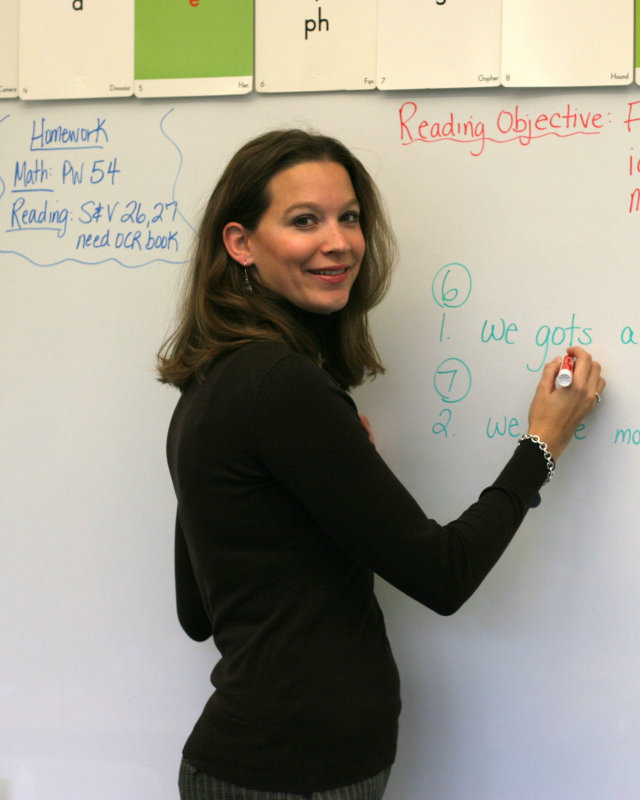 d e ph
4 Dinosaur 5 Hen 6 Fan 7 Gopher 8 Hound
Homework
Math: PW 54
Reading: S&V 26, 27
need OCR book
Reading Objective:
6
1. we gots a
7
2. we